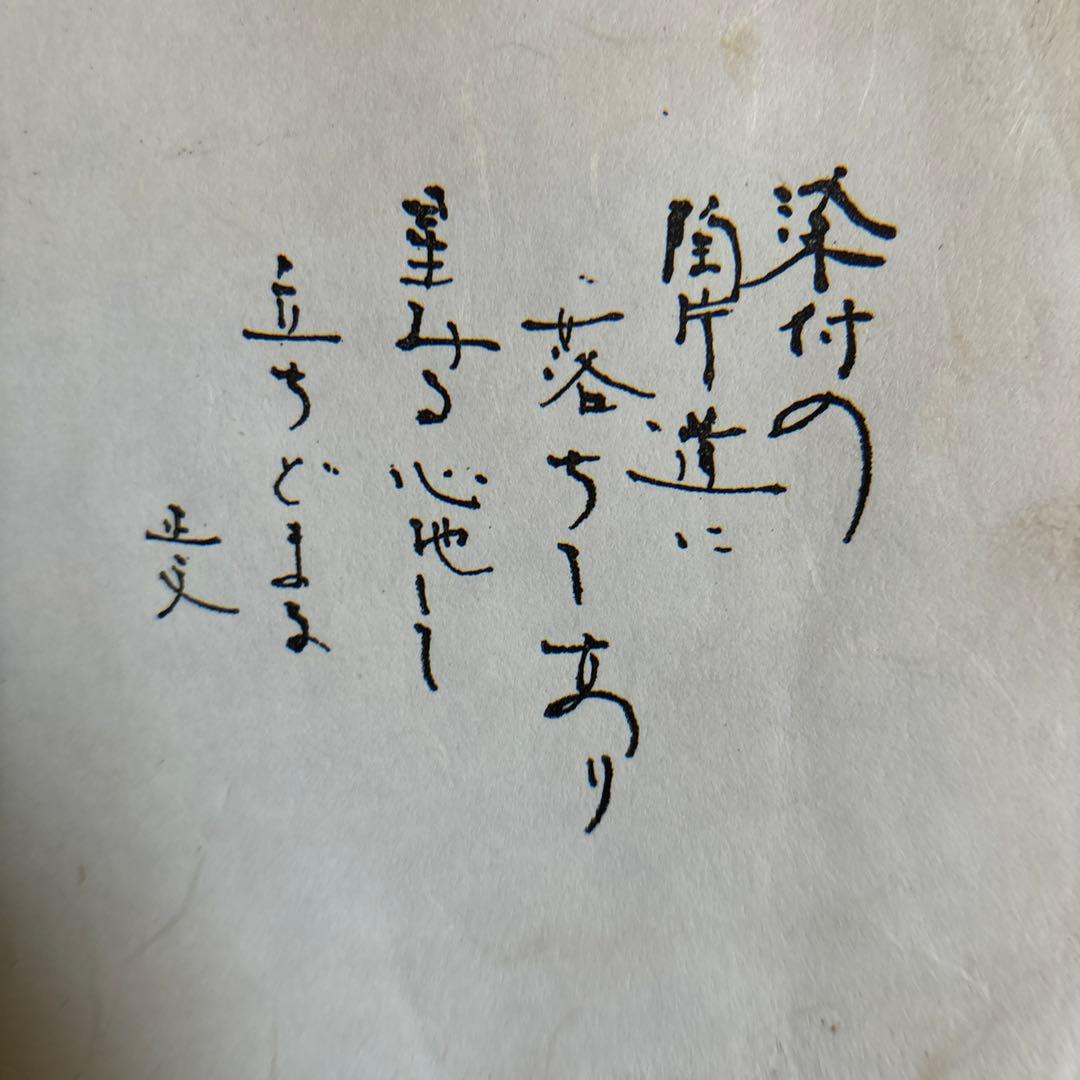 染付の
陶片道に
落ちしあり
星みる心地して
立ちどまる